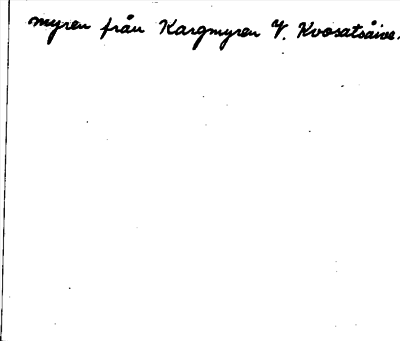 myren från Kargmyren V. Kvosatsåive.